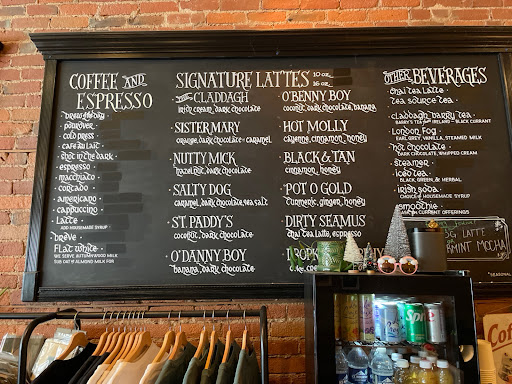 COFFEE AND
ESPRESSO
Brew of the Day
Pourover
Cold Press
Cafe au lait
Shot in the Dark
Espresso
Macchiato
Cortado
Americano
Cappuccino
Latte
ADD HOUSEMADE SYRUP
Breve
Flat White
WE SERVE AUTUMNWOOD MILK
SUB OAT & ALMOND MILK FOR
SIGNATURE LATTES 10 oz.
16 oz.
THE CLADDAGH
Irish Cream, Dark Chocolate
SISTER MARY
Orange, Dark Chocolate + Caramel
NUTTY MICK
Hazelnut, Dark Chocolate
SALTY DOG
Caramel, Dark Chocolate, Sea Salt
ST. PADDY'S
Coconut, Dark Chocolate
O'DANNY BOY
Banana, Dark Chocolate
O'BENNY BOY
Coconut, Dark Chocolate, Banana
HOT MOLLY
Cayenne, Cinnamon, Honey
BLACK & TAN
Cinnamon, Honey
POT O GOLD
Turmeric, Ginger, Honey
DIRTY SEAMUS
Chai Tea Latte, Espresso
OTHER BEVERAGES
Chai Tea Latte
Tea Source Tea
Claddagh Barry Tea
BARRY'S TEA FROM IRELAND + BLACK CURRANT
London Fog
EARL GREY, VANILLA, STEAMED MILK
Hot Chocolate
DARK CHOCOLATE, WHIPPED CREAM
Steamer
Iced Tea
BLACK, GREEN, & HERBAL
Irish Soda
CHOICE OF HOUSEMADE SYRUP
Smoothie
ASK FOR CURRENT OFFERINGS
LATTE
MINT MOCHA
*SEASONAL